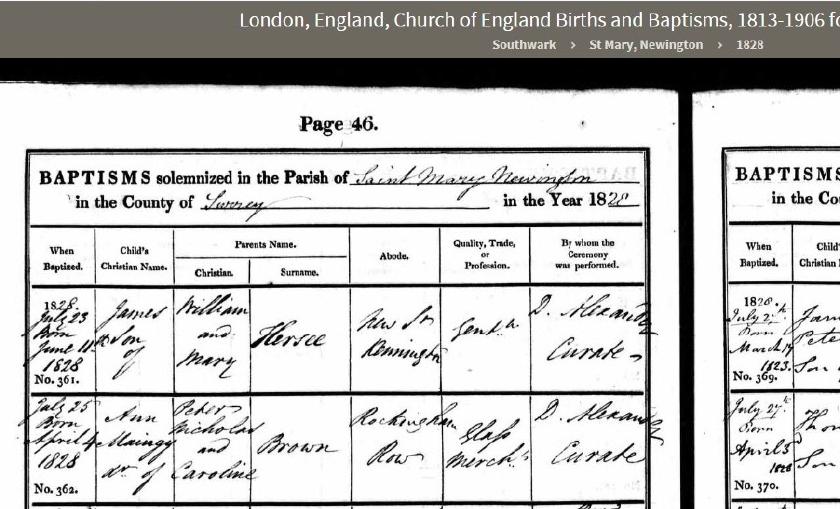 London, England, Church of England Births and Baptisms, 1813-1906 fo
Southwark > St Mary, Newington > 1828
Page 46.
BAPTISMS solemnized in the Parish of Saint Mary Newington
in the County of Surrey in the Year 1828
When Baptized. Child's Christian Name. Parents Name. Abode. Quality, Trade, or Profession. By whom the Ceremony was performed.
Christian. Surname.
1828. July 23 Born June 11th 1828 No. 361. James Son of William and Mary Hersee New St Kennington Gentn D. Alexander Curate
July 25 Born April 4 1828 No. 362. Ann dr of Peter Nicholas and Caroline Brown Rockingham Row Glass Mercht D. Alexander Curate
BAPTISMS
in the Cou
When Baptized. Child Christian N
1828. July 27th Born March 17 1823. No. 369. Jam Pete Son
July 27th Born April 5 1828 No. 370. Thom Son